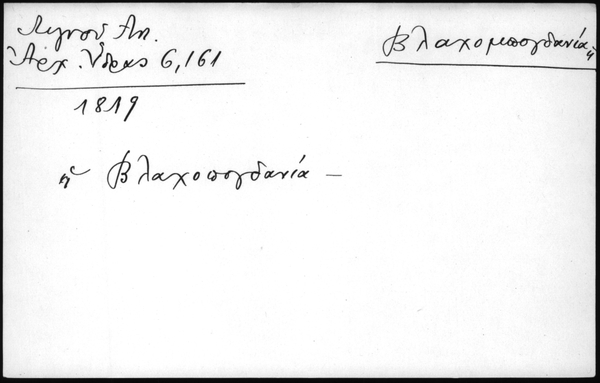 Λιγνού Αν.
Ἀρχ. Ὕδρας 6,161
1819
Βλαχομπογδανία, ἡ
ἡ Βλαχοπογδανία —